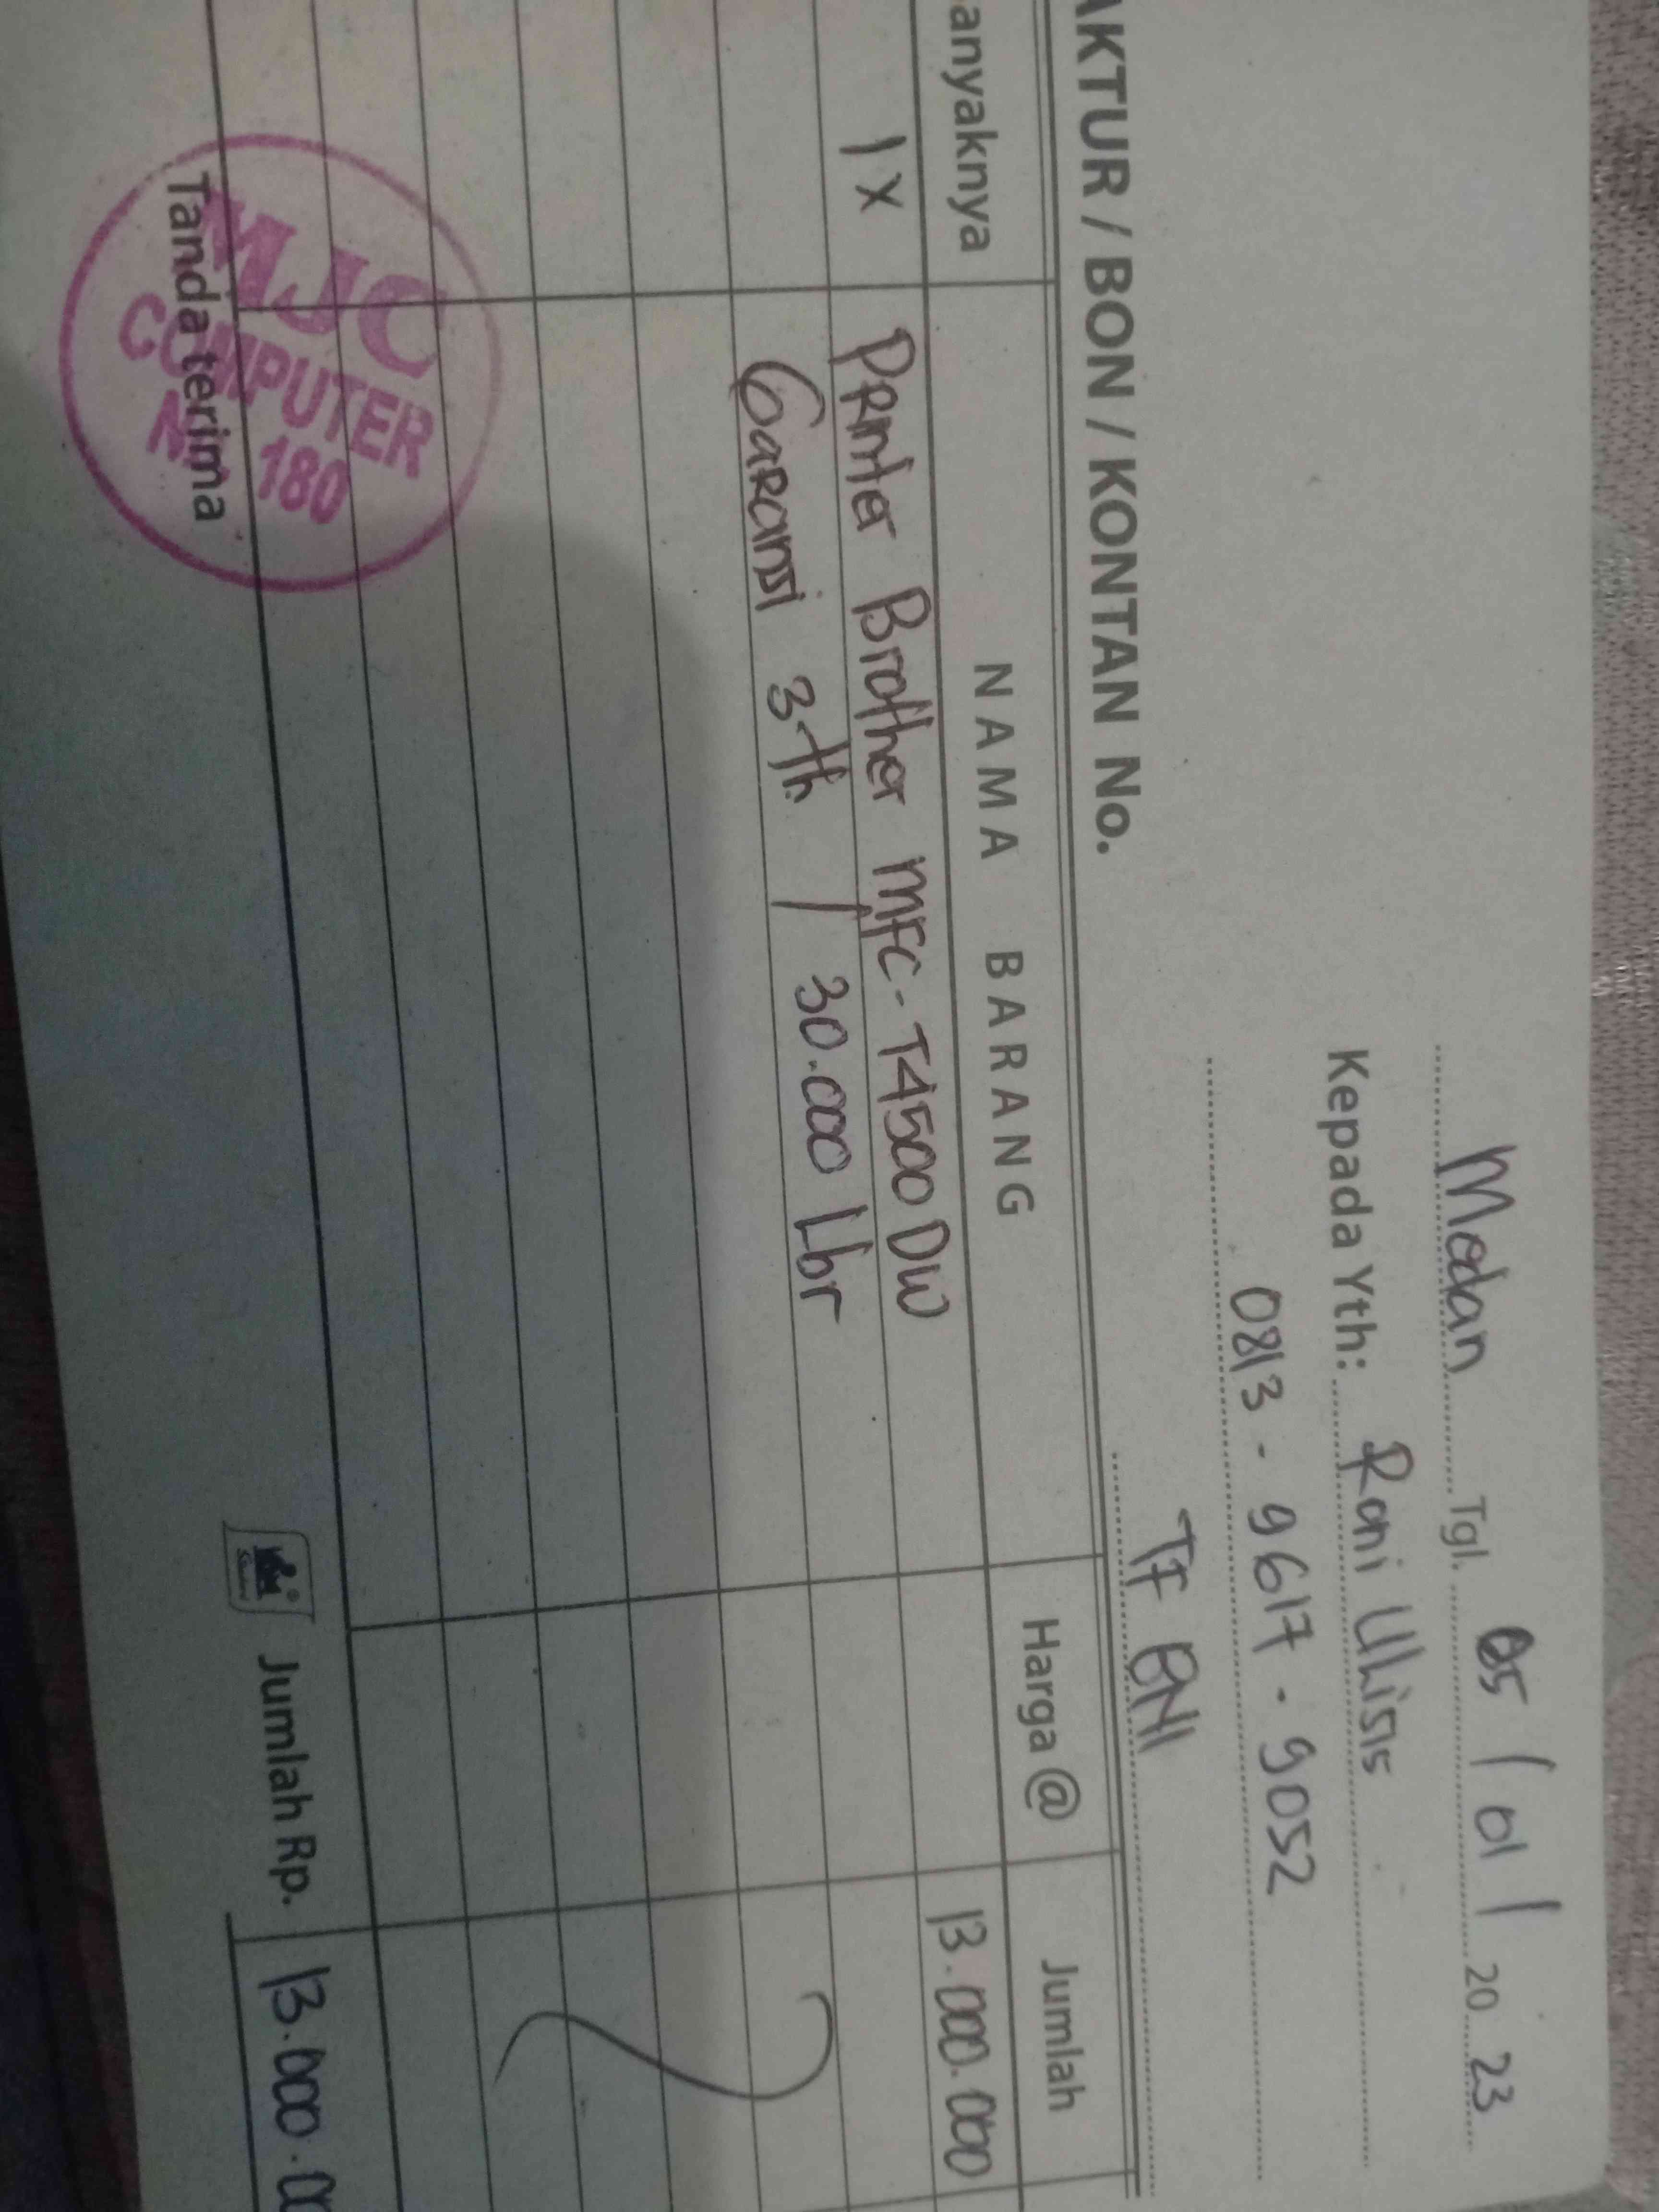 Medan Tgl. 05 / 01 / 20 23
Kepada Yth: Roni Ulisis
0813 - 9617 - 9052
TF BNI
AKTUR / BON / KONTAN No.
anyaknya NAMA BARANG Harga @ Jumlah
1 X Printer Brother MFC - T4500 DW 13.000.000
Garansi 3 th / 30.000 Lbr
MJC
COMPUTER
180
Tanda terima
Jumlah Rp. 13.000.00